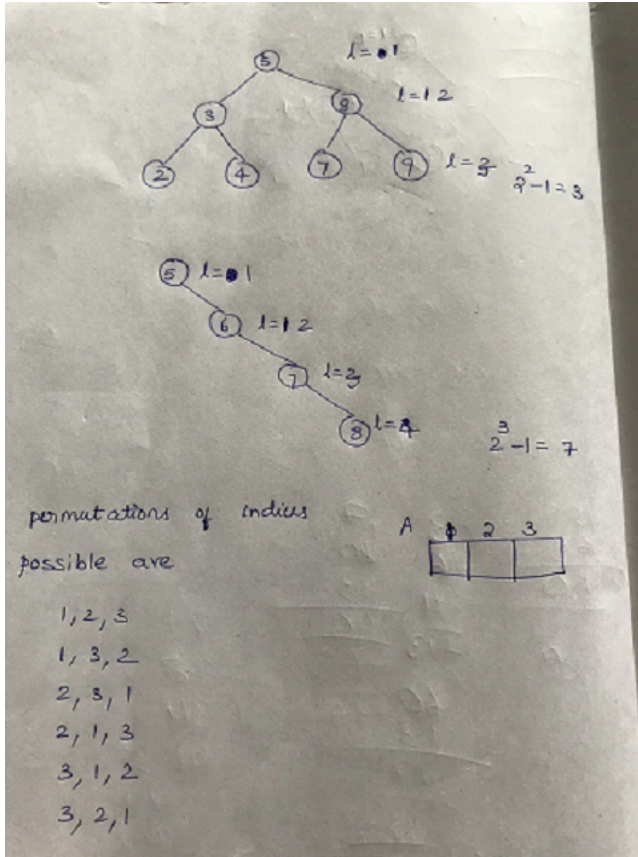 5 l=1
3 8 l=1 2
2 4 7 9 l=3
2²-1=3
5 l=1
6 l=1 2
7 l=3
8 l=4
2³-1=7
permutations of indices
possible are
A 1 2 3
1, 2, 3
1, 3, 2
2, 3, 1
2, 1, 3
3, 1, 2
3, 2, 1